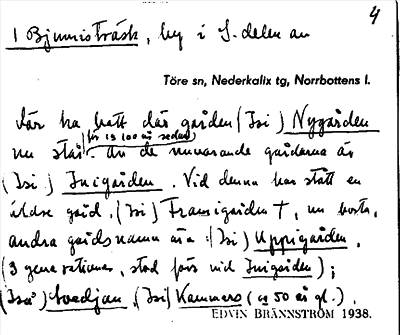 4
1 Bjumisträsk, by i S. delen av
Töre sn, Nederkalix tg, Norrbottens l.
där ha hatt där gården (Isi) Nygården
för 13 100 år sedan
nu står. Av de nuvarande gårdarna är
(Isi) Inigården. Vid denna har stått en
äldre gård, (Isi) Framigården †, nu borta,
andra gårdsnamn äro: (Isi) Uppigården,
(3 generationer, stod förs vid Inigården);
(Iså) Svedjan, (Isi) Kammers (c 50 år gl.).
EDVIN BRÄNNSTRÖM 1938.